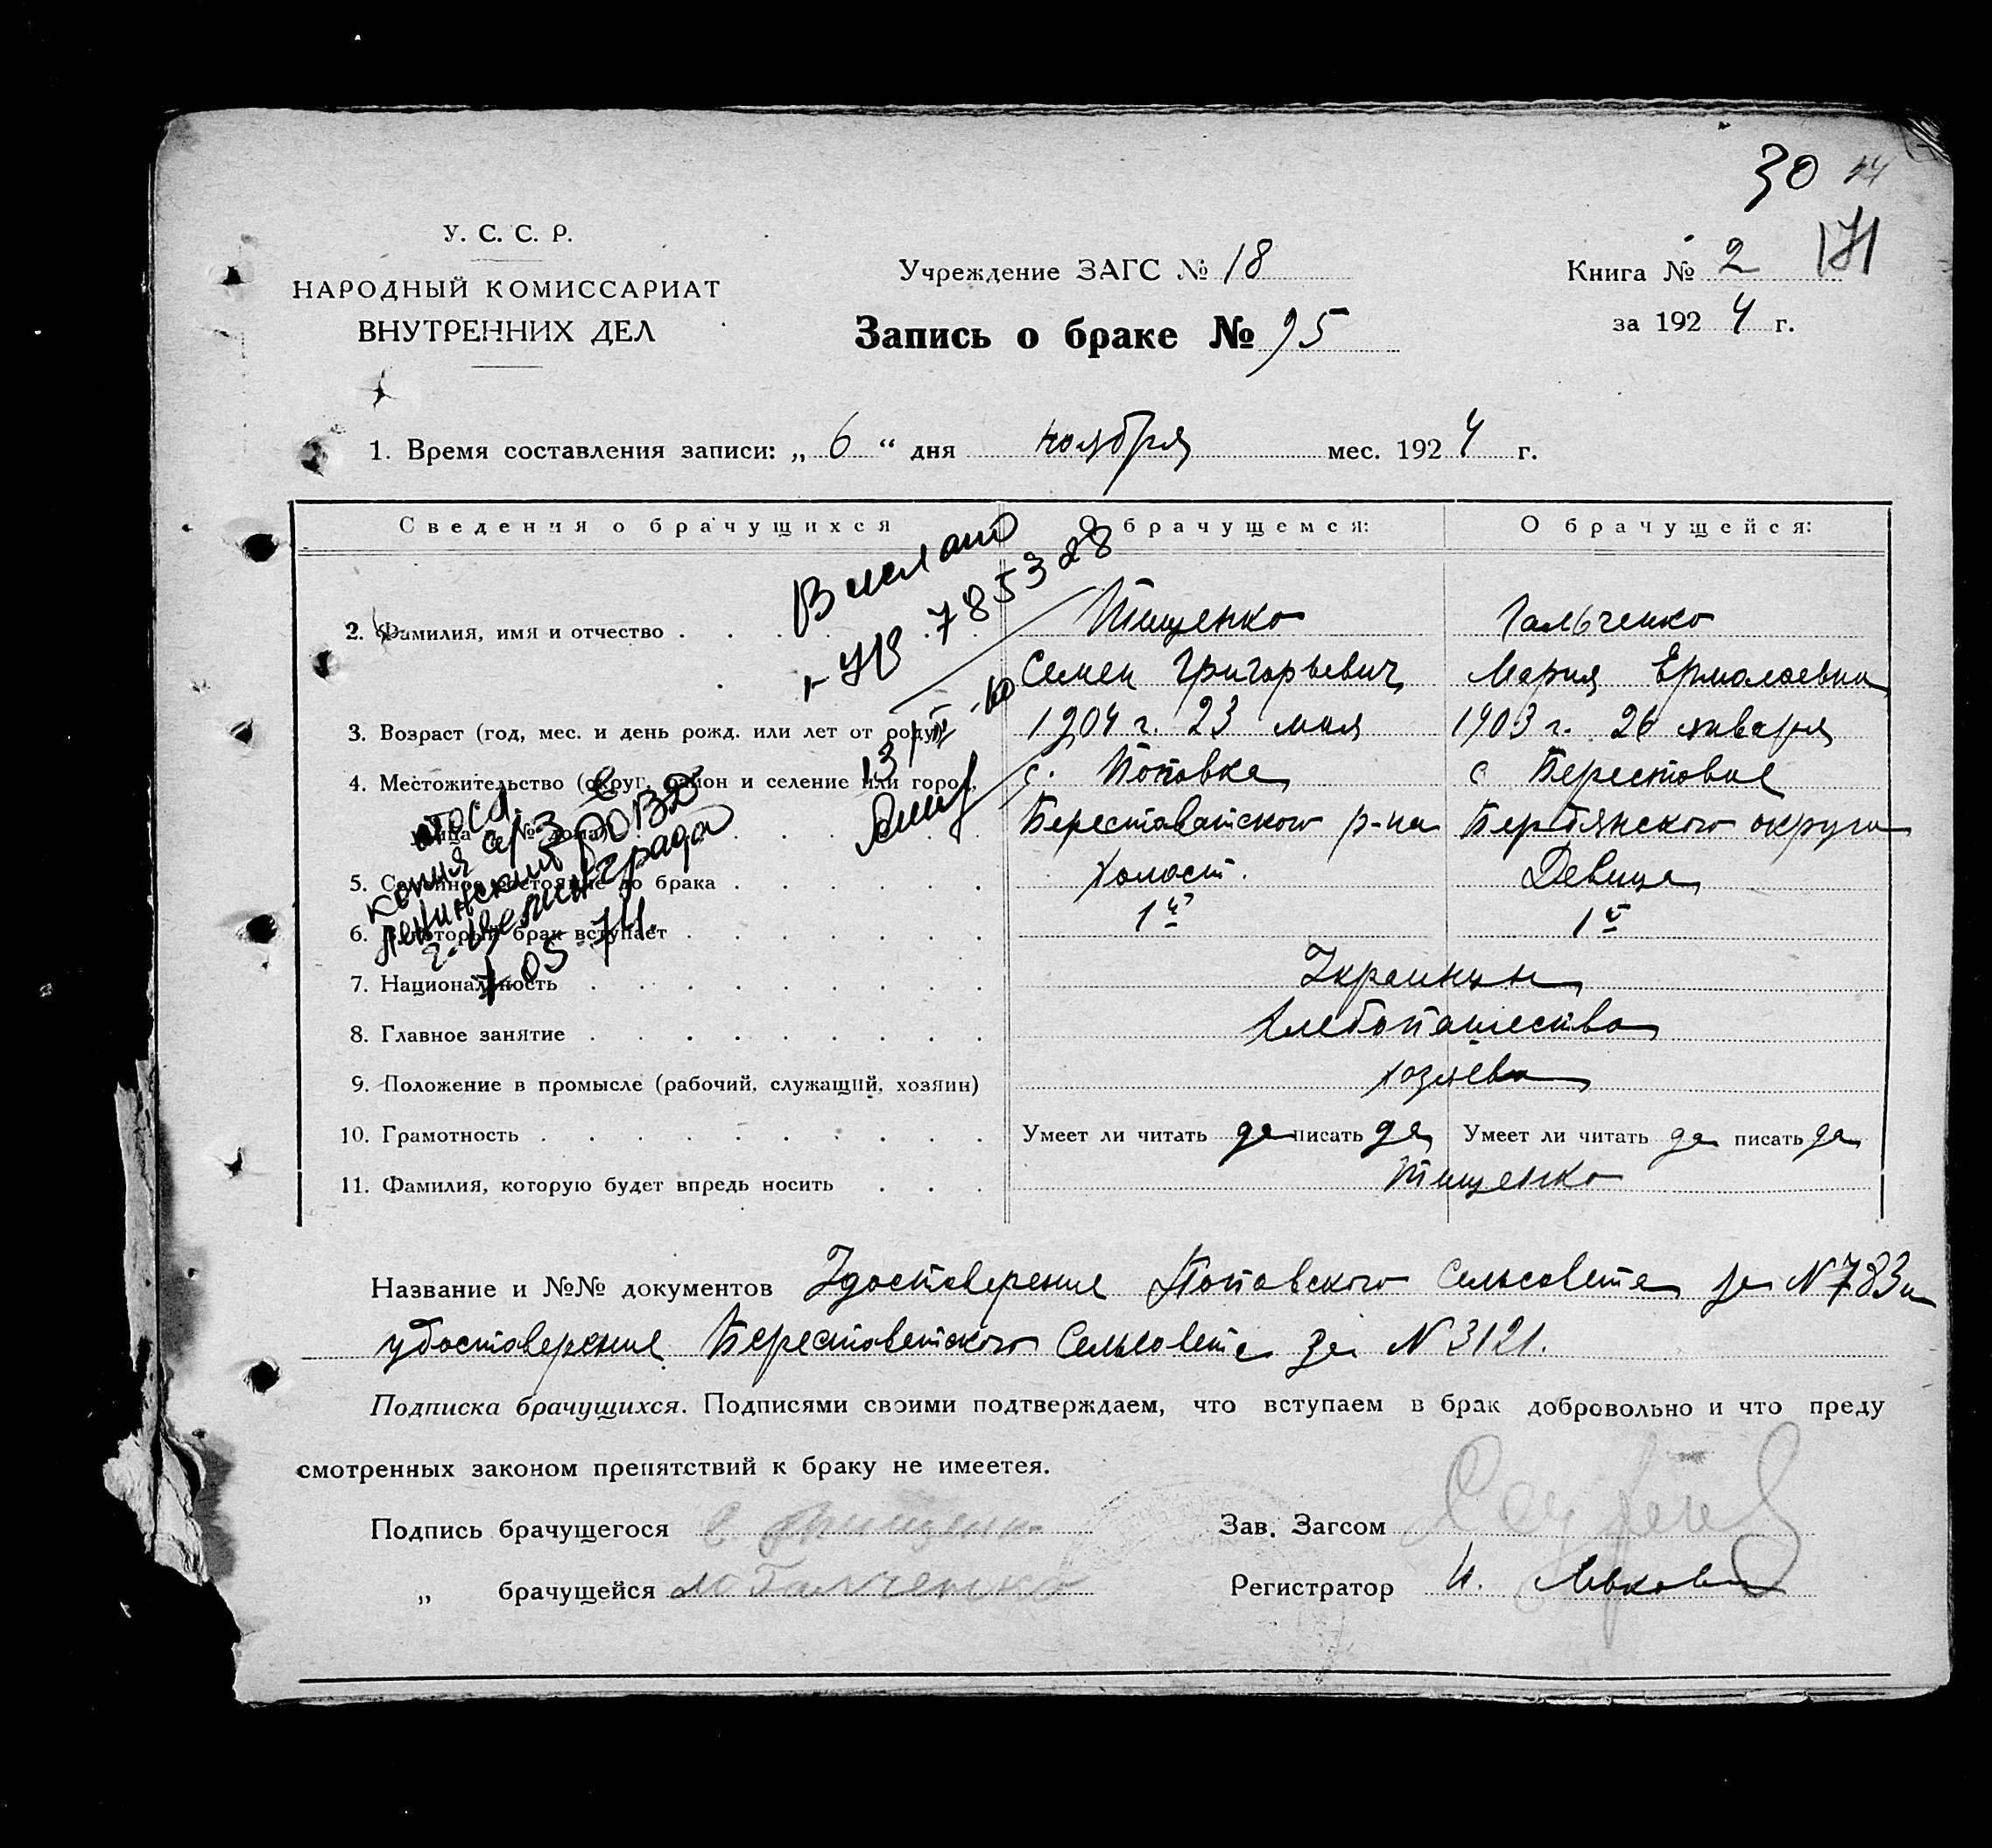 30 44
171
У. С. С. Р.
НАРОДНЫЙ КОМИССАРИАТ
ВНУТРЕННИХ ДЕЛ
Учреждение ЗАГС № 18
Запись о браке № 95
Книга № 2
за 1924 г.
1. Время составления записи: „ 6 “ дня ноября мес. 1924 г.
Сведения о брачущихся О брачущемся: О брачущейся:
Выслано
785328
2. Фамилия, имя и отчество Тищенко Гальченко
Семен Григорьевич Мария Ермолаевна
3. Возраст (год, мес. и день рожд. или лет от роду) 1904 г. 23 мая 1903 г. 26 января
4. Местожительство (округ, район и селение или город, с. Поповка с Берестовое
улица и № дома) Берестоватского р-на Бердянского округа
5. Семейное состояние до брака Холост. Девица
6. В который брак вступает 1й 1й
7. Национальность Украинцы
8. Главное занятие Хлебопашество
9. Положение в промысле (рабочий, служащий, хозяин) хозяева
10. Грамотность Умеет ли читать да писать да Умеет ли читать да писать да
11. Фамилия, которую будет впредь носить Тищенко
копия а/з
Ленинский РОВД
г. Целинограда
05-74.
Название и №№ документов Удостоверение Поповского Сельсовета за N 783 и
удостоверение Берестоветского Сельсовета за N 3121.
Подписка брачущихся. Подписями своими подтверждаем, что вступаем в брак добровольно и что преду
смотренных законом препятствий к браку не имеетея.
Подпись брачущегося С. Тищенко Зав. Загсом
„ брачущейся М Галченко Регистратор И. Левкович